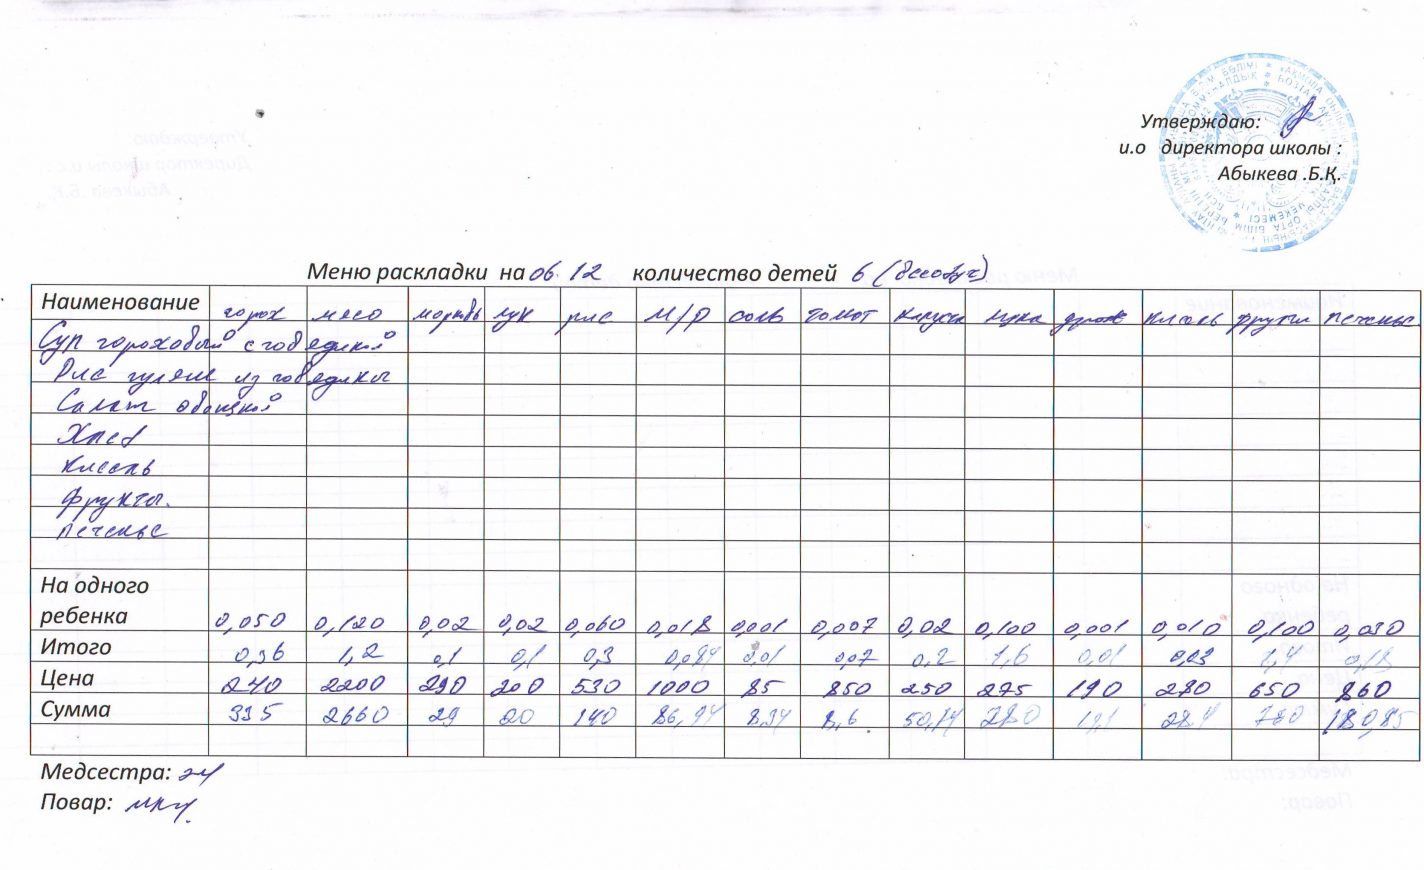 Утверждаю:
и.о директора школы :
Абыкева .Б.Қ.
Меню раскладки на 06.12 количество детей 6
Наименование горох мясо морковь лук рис м/р соль томат капуста мука дрож кисель фрукты печенье
Суп гороховый с говядиной
Рис гуляш из говядины
Салат овощной
Хлеб
Кисель
Фрукты.
Печенье
На одного
ребенка 0,050 0,120 0,02 0,02 0,060 0,018 0,001 0,007 0,02 0,100 0,001 0,010 0,100 0,030
Итого 0,36 1,2 0,1 0,1 0,3 0,084 0,01 0,07 0,2 1,6 0,01 0,03 1,4 0,18
Цена 240 2200 290 200 530 1000 85 850 250 275 190 280 650 860
Сумма 335 2660 29 20 140 86,94 8,34 8,6 50,14 280 28,4 780 180,85
Медсестра:
Повар: